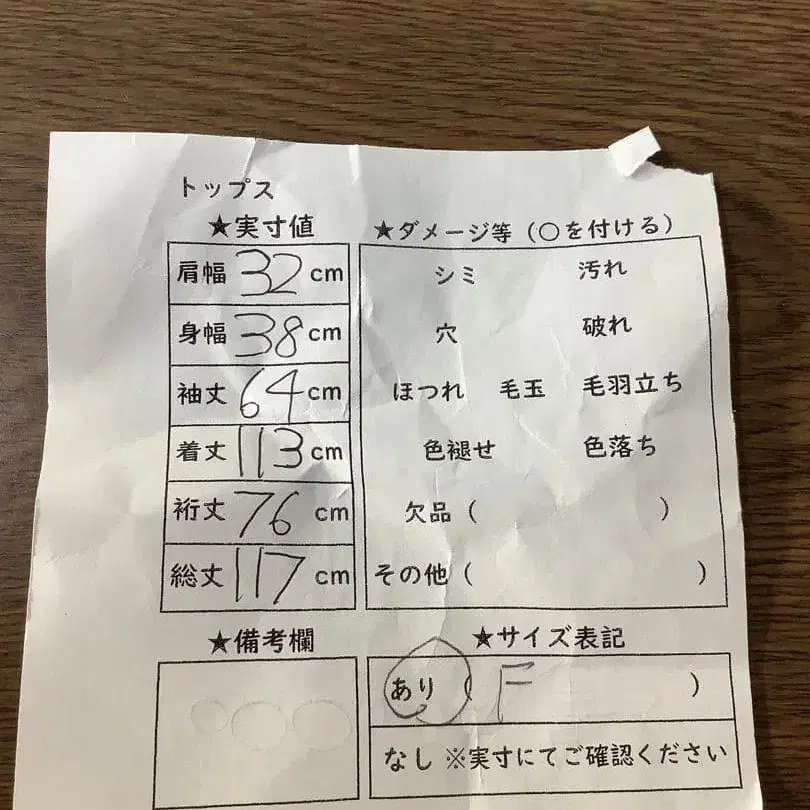 トップス
★実寸値
肩幅 32 cm
身幅 38 cm
袖丈 64 cm
着丈 113 cm
裄丈 76 cm
総丈 117 cm
★ダメージ等（○を付ける）
シミ 汚れ
穴 破れ
ほつれ 毛玉 毛羽立ち
色褪せ 色落ち
欠品（ ）
その他（ ）
★備考欄
★サイズ表記
あり（ F ）
なし ※実寸にてご確認ください